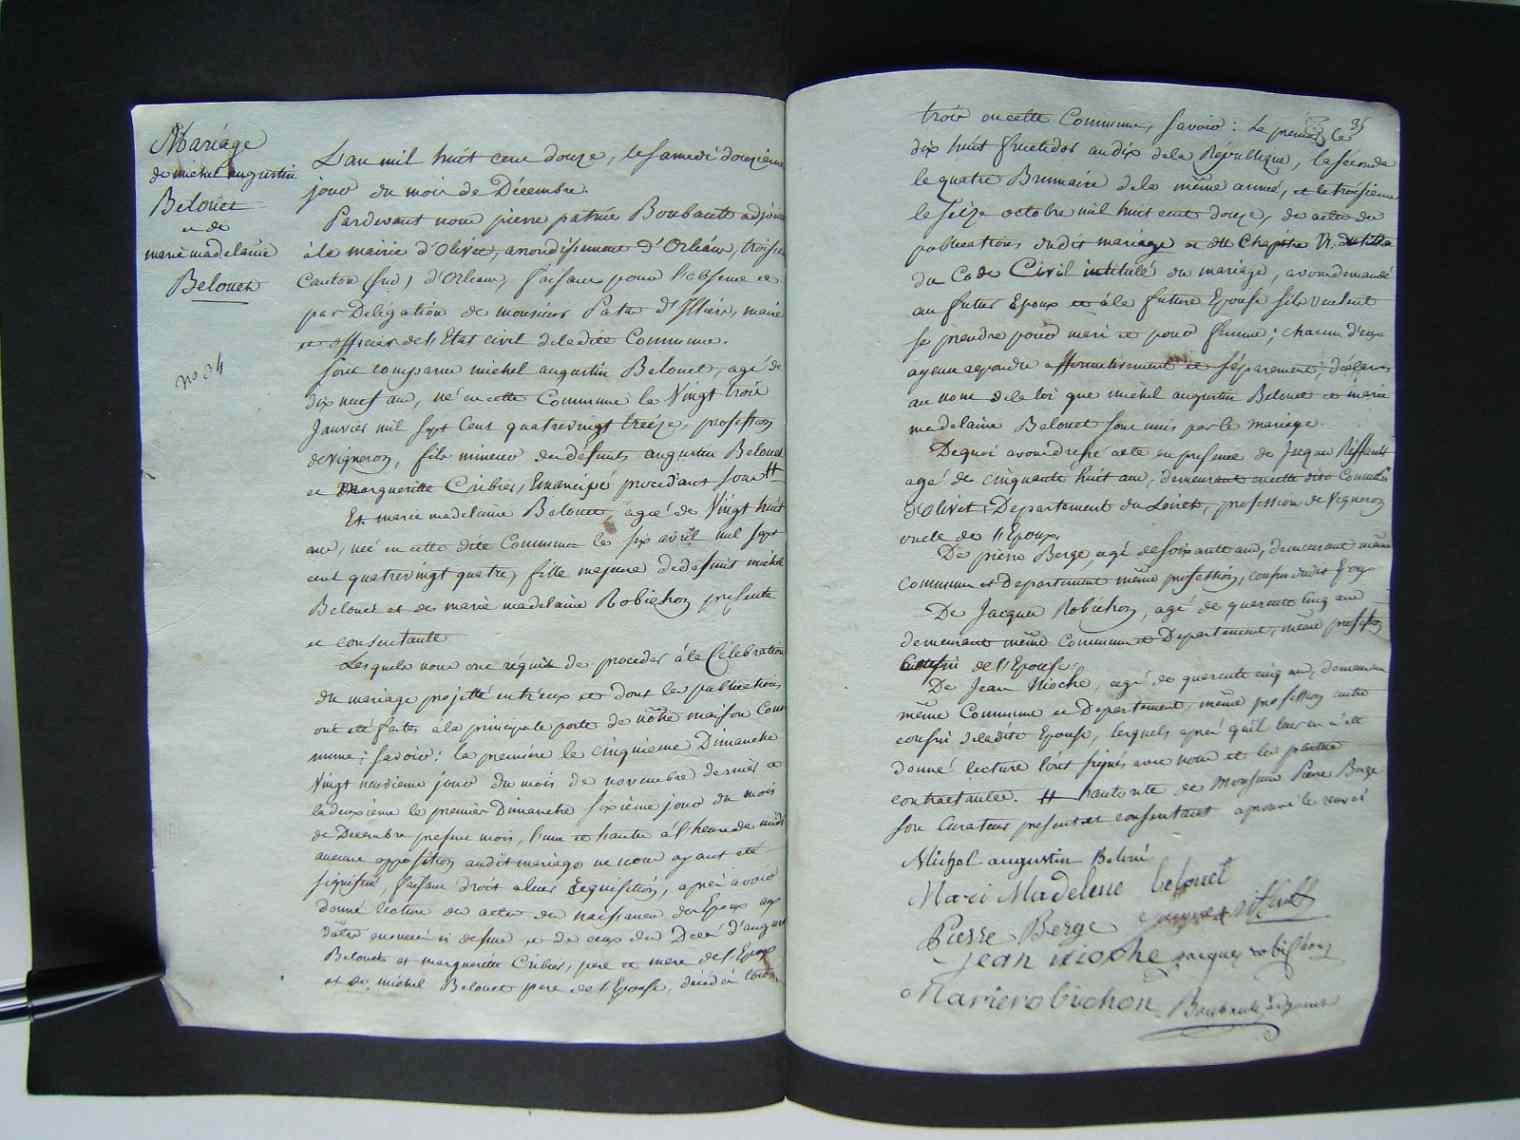 Mariage
de michel augustin
Belouet
et de
marie madelaine
Belouet
no 34
L'an mil huit cent douze, le samedi douzieme
jour du mois de Décembre.
Pardevant nous pierre patrice Boubault adjoint
à la mairie d'Olivet, arrondissement d'Orléans, troisie
Canton (sud) d'Orleans, faisant pour l'absence et
par Délégation de monsieur d'Illiers, maire
et officier de l'Etat civil de ladite Commune.
sont comparus michel augustin Belouet, agé de
dix neuf ans, né en cette Commune le Vingt trois
Janvier mil sept Cent quatrevingt treize, profession
de vigneron, fils mineur des défunts augustin Belouet
et Marguerite Cribier, Emancipé procedant sous H
Et marie madelaine Belouet, agée de Vingt huit
ans, née en cette dite Commune le six avril mil sept
cent quatrevingt quatre, fille majeure de defunt michel
Belouet et de marie madelaine Robichon presente
et consentante
Lesquels nous ont réquis de proceder à la Célébration
du mariage projetté entr'eux et dont les publications
ont été faites à la principale porte de nôtre maison Com
mune; savoir: la premiere le cinquieme Dimanche
Vingt neuvieme jour du mois de novembre dernier et
la deuxieme le premier Dimanche sixième jour du mois
de Décembre present mois, l'une et l'autre à l'heure de midi
aucune opposition audit mariage ne nous ayant été
signifiée, faisant droit à leur Requisition, après avoir
donné lecture des actes de naissance des Epoux aux
dates enoncées ci dessus et de ceux des Décès d'augustin
Belouet et marguerite Cribier, pere et mere de l'Epoux
et de michel Belouet pere de l'Epouse, décédés tous
35
trois en cette Commune, savoir: Le premier Le
dix huit fructidor an dix de la République, la seconde
le quatre Brumaire de la même année, et le troisieme
le seize octobre mil huit cent douze, des actes de
publications dudit mariage et du Chapitre VI. du titre
du Code Civil intitulé du mariage, avons demandé
au futur Epoux et à la future Epouse s'ils veulent
se prendre pour mari et pour femme; chacun d'eux
ayant repondu affirmativement et séparement, déclarons
au nom de la loi que michel augustin Belouet et marie
madelaine Belouet sont unis par le mariage.
De quoi avons dressé acte en presence de Jacques Riffault
agé de cinquante huit ans, demeurant en cette dite Commune
d'Olivet, Departement du Loiret, profession de Vigneron
oncle de l'Epoux,
De pierre Berge, agé de soixante ans, demeurant même
Commune et Departement même profession, cousin dudit Epoux
De Jacques Robichon, agé de quarante cinq ans
demeurant même Commune et Departement, même profession
Cousin de l'Epouse;
De Jean Nioche, agé de quarante cinq ans, demeurant
même Commune et Departement, même profession autre
cousin de ladite Epouse, lesquels après qu'il leur en a été
donné lecture l'ont signé avec nous et les parties
contractantes. H l'autorité de Monsieur Pierre Berge
son Curateur present et consentant approuvé le renvoi
Michel augustin Beloué
Mari Madelene belouet
Pierre Berge Jacques Riffault
Jean nioche Jacques robichon
Marie robichon Boubault adjoint